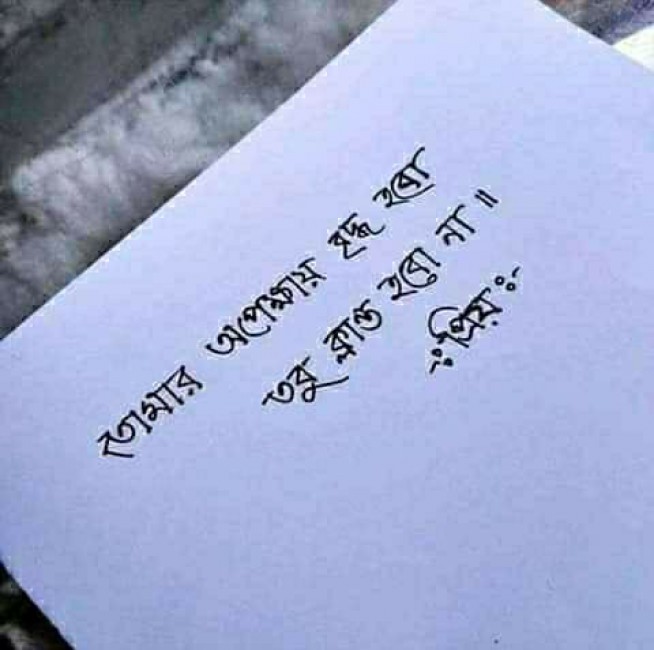 তোমার অপেক্ষায় বৃদ্ধ হবো
তবু ক্লান্ত হবো না ॥
ঃপ্রিয়ঃ